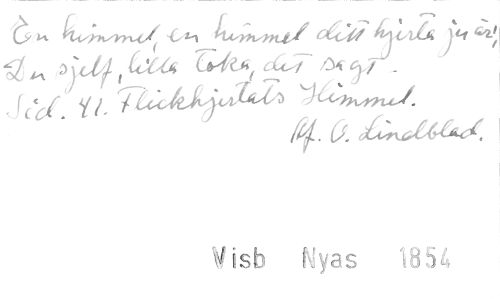 En himmel, en himmel ditt hjerta ju är!,
Du sjelf, lilla toka, det sagt.
Sid. 41. Flickhjertats Himmel.
Af. O. Lindblad.
Visb Nyas 1854